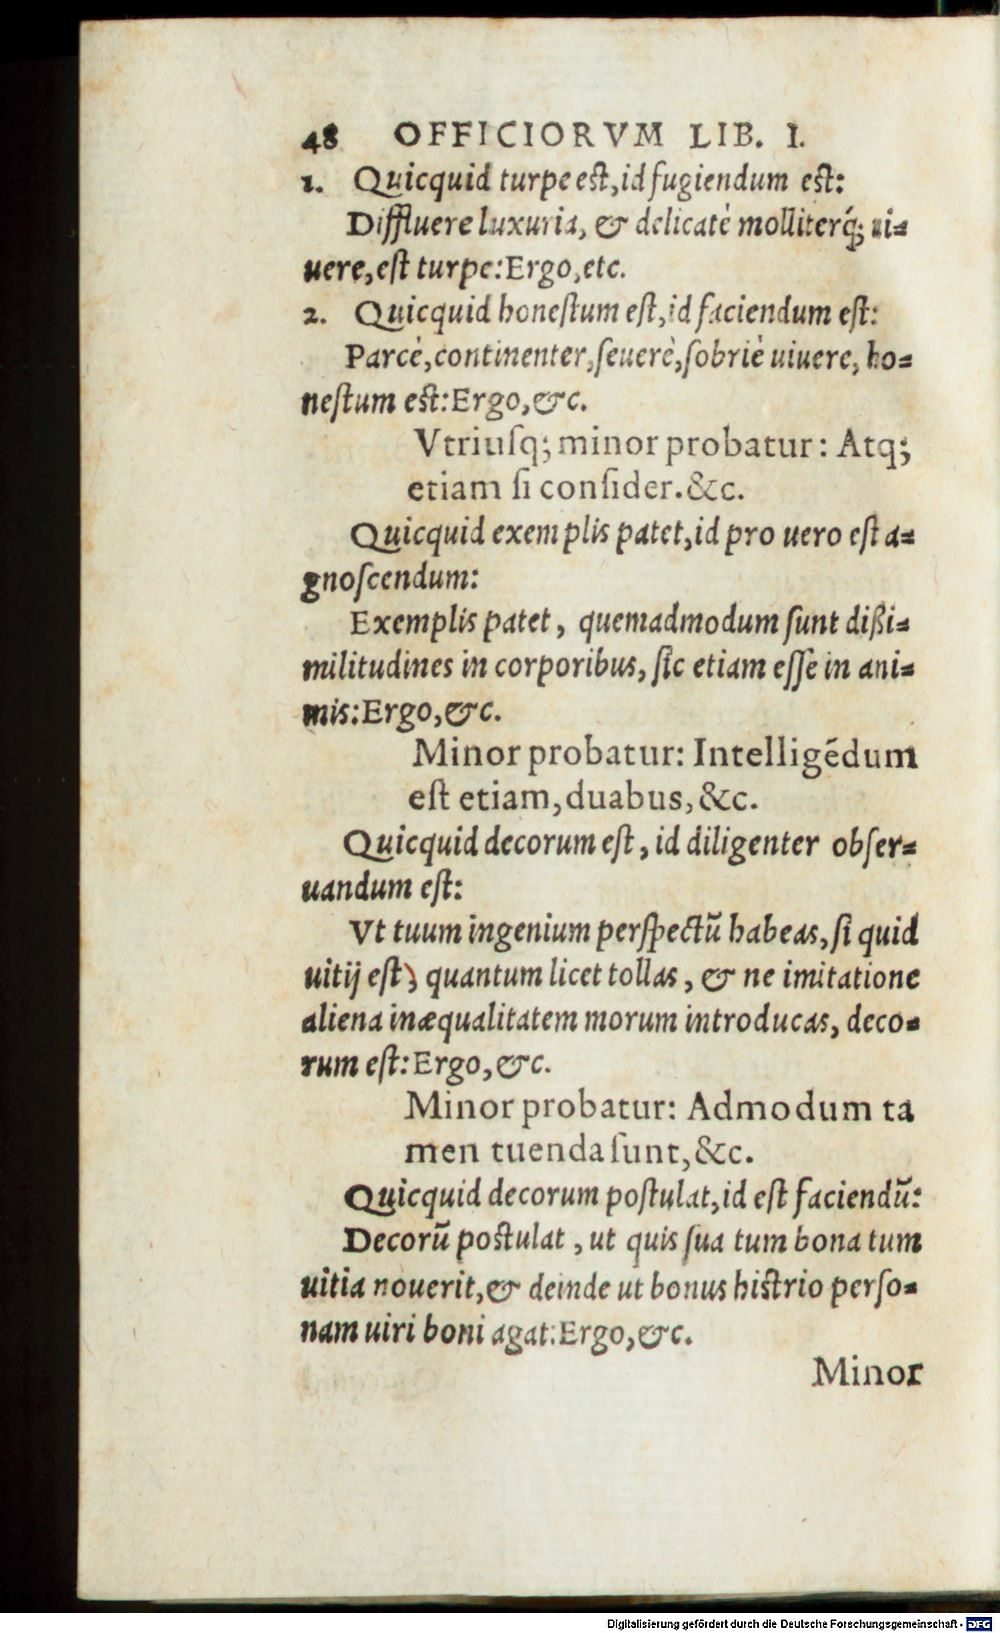 48 OFFICIORVM LIB. I.
1. Quicquid turpe est, id fugiendum est:
Diffluere luxuria, & delicatè molliterq́; ui=
uere, est turpe: Ergo, etc.
2. Quicquid honestum est, id faciendum est:
Parcè, continenter, seuerè, sobriè uiuere, ho=
nestum est: Ergo, &c.
Vtriusq; minor probatur: Atq;
etiam si consider. &c.
Quicquid exemplis patet, id pro uero est a=
gnoscendum:
Exemplis patet, quemadmodum sunt dißi=
militudines in corporibus, sic etiam esse in ani=
mis: Ergo, &c.
Minor probatur: Intelligēdum
est etiam, duabus, &c.
Quicquid decorum est, id diligenter obser=
uandum est:
Vt tuum ingenium perspectū habeas, si quid
uitij est, quantum licet tollas, & ne imitatione
aliena inæqualitatem morum introducas, deco=
rum est: Ergo, &c.
Minor probatur: Admodum ta
men tuenda sunt, &c.
Quicquid decorum postulat, id est faciendū:
Decorū postulat, ut quis sua tum bona tum
uitia nouerit, & deinde ut bonus histrio perso=
nam uiri boni agat: Ergo, &c.
Minor
Digitalisierung gefördert durch die Deutsche Forschungsgemeinschaft - DFG